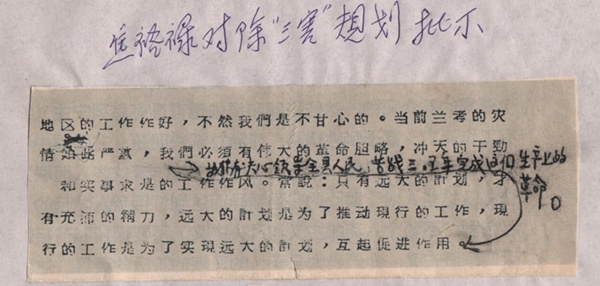 焦裕禄对除“三害”规划批示
地区的工作作好，不然我們是不甘心的。当前兰考的灾
情如此严重，我們必須有伟大的革命胆略，冲天的干勁
有决心领导全县人民，苦战三、五年完成这个生产上的
革命。
和实事求是的工作作风。常說：只有远大的計划，才
有充沛的精力，远大的計划是为了推动現行的工作，現
行的工作是为了实現远大的計划，互起促进作用。